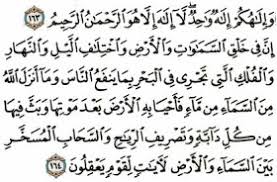 وَإِلَٰهُكُمْ إِلَٰهٌ وَٰحِدٌ لَّآ إِلَٰهَ إِلَّا هُوَ ٱلرَّحْمَٰنُ ٱلرَّحِيمُ ١٦٣
إِنَّ فِى خَلْقِ ٱلسَّمَٰوَٰتِ وَٱلْأَرْضِ وَٱخْتِلَٰفِ ٱلَّيْلِ وَٱلنَّهَارِ
وَٱلْفُلْكِ ٱلَّتِى تَجْرِى فِى ٱلْبَحْرِ بِمَا يَنفَعُ ٱلنَّاسَ وَمَآ أَنزَلَ ٱللَّهُ
مِنَ ٱلسَّمَآءِ مِن مَّآءٍ فَأَحْيَا بِهِ ٱلْأَرْضَ بَعْدَ مَوْتِهَا وَبَثَّ فِيهَا
مِن كُلِّ دَآبَّةٍ وَتَصْرِيفِ ٱلرِّيَٰحِ وَٱلسَّحَابِ ٱلْمُسَخَّرِ
بَيْنَ ٱلسَّمَآءِ وَٱلْأَرْضِ لَءَايَٰتٍ لِّقَوْمٍ يَعْقِلُونَ ١٦٤